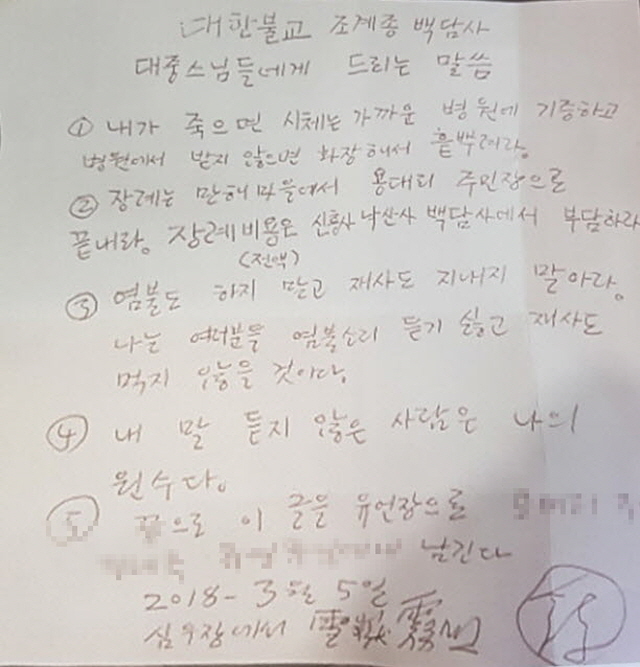 대한불교 조계종 백담사
대중스님들에게 드리는 말씀
① 내가 죽으면 시체는 가까운 병원에 기증하고
병원에서 받지 않으면 화장해서 흩뿌려라.
② 장례는 만해마을에서 용대리 주민장으로
끝내라. 장례비용도 신흥사 낙산사 백담사에서 부담하라
(전액)
③ 염불도 하지 말고 재사도 지내지 말아라.
나는 여러분들 염불소리 듣기 싫고 재사도
먹지 않을 것이다.
④ 내 말 듣지 않은 사람은 나의
원수다.
⑤ 끝으로 이 글을 유언장으로
남긴다
2018-3월 5일
심우장에서 雪嶽 霧山